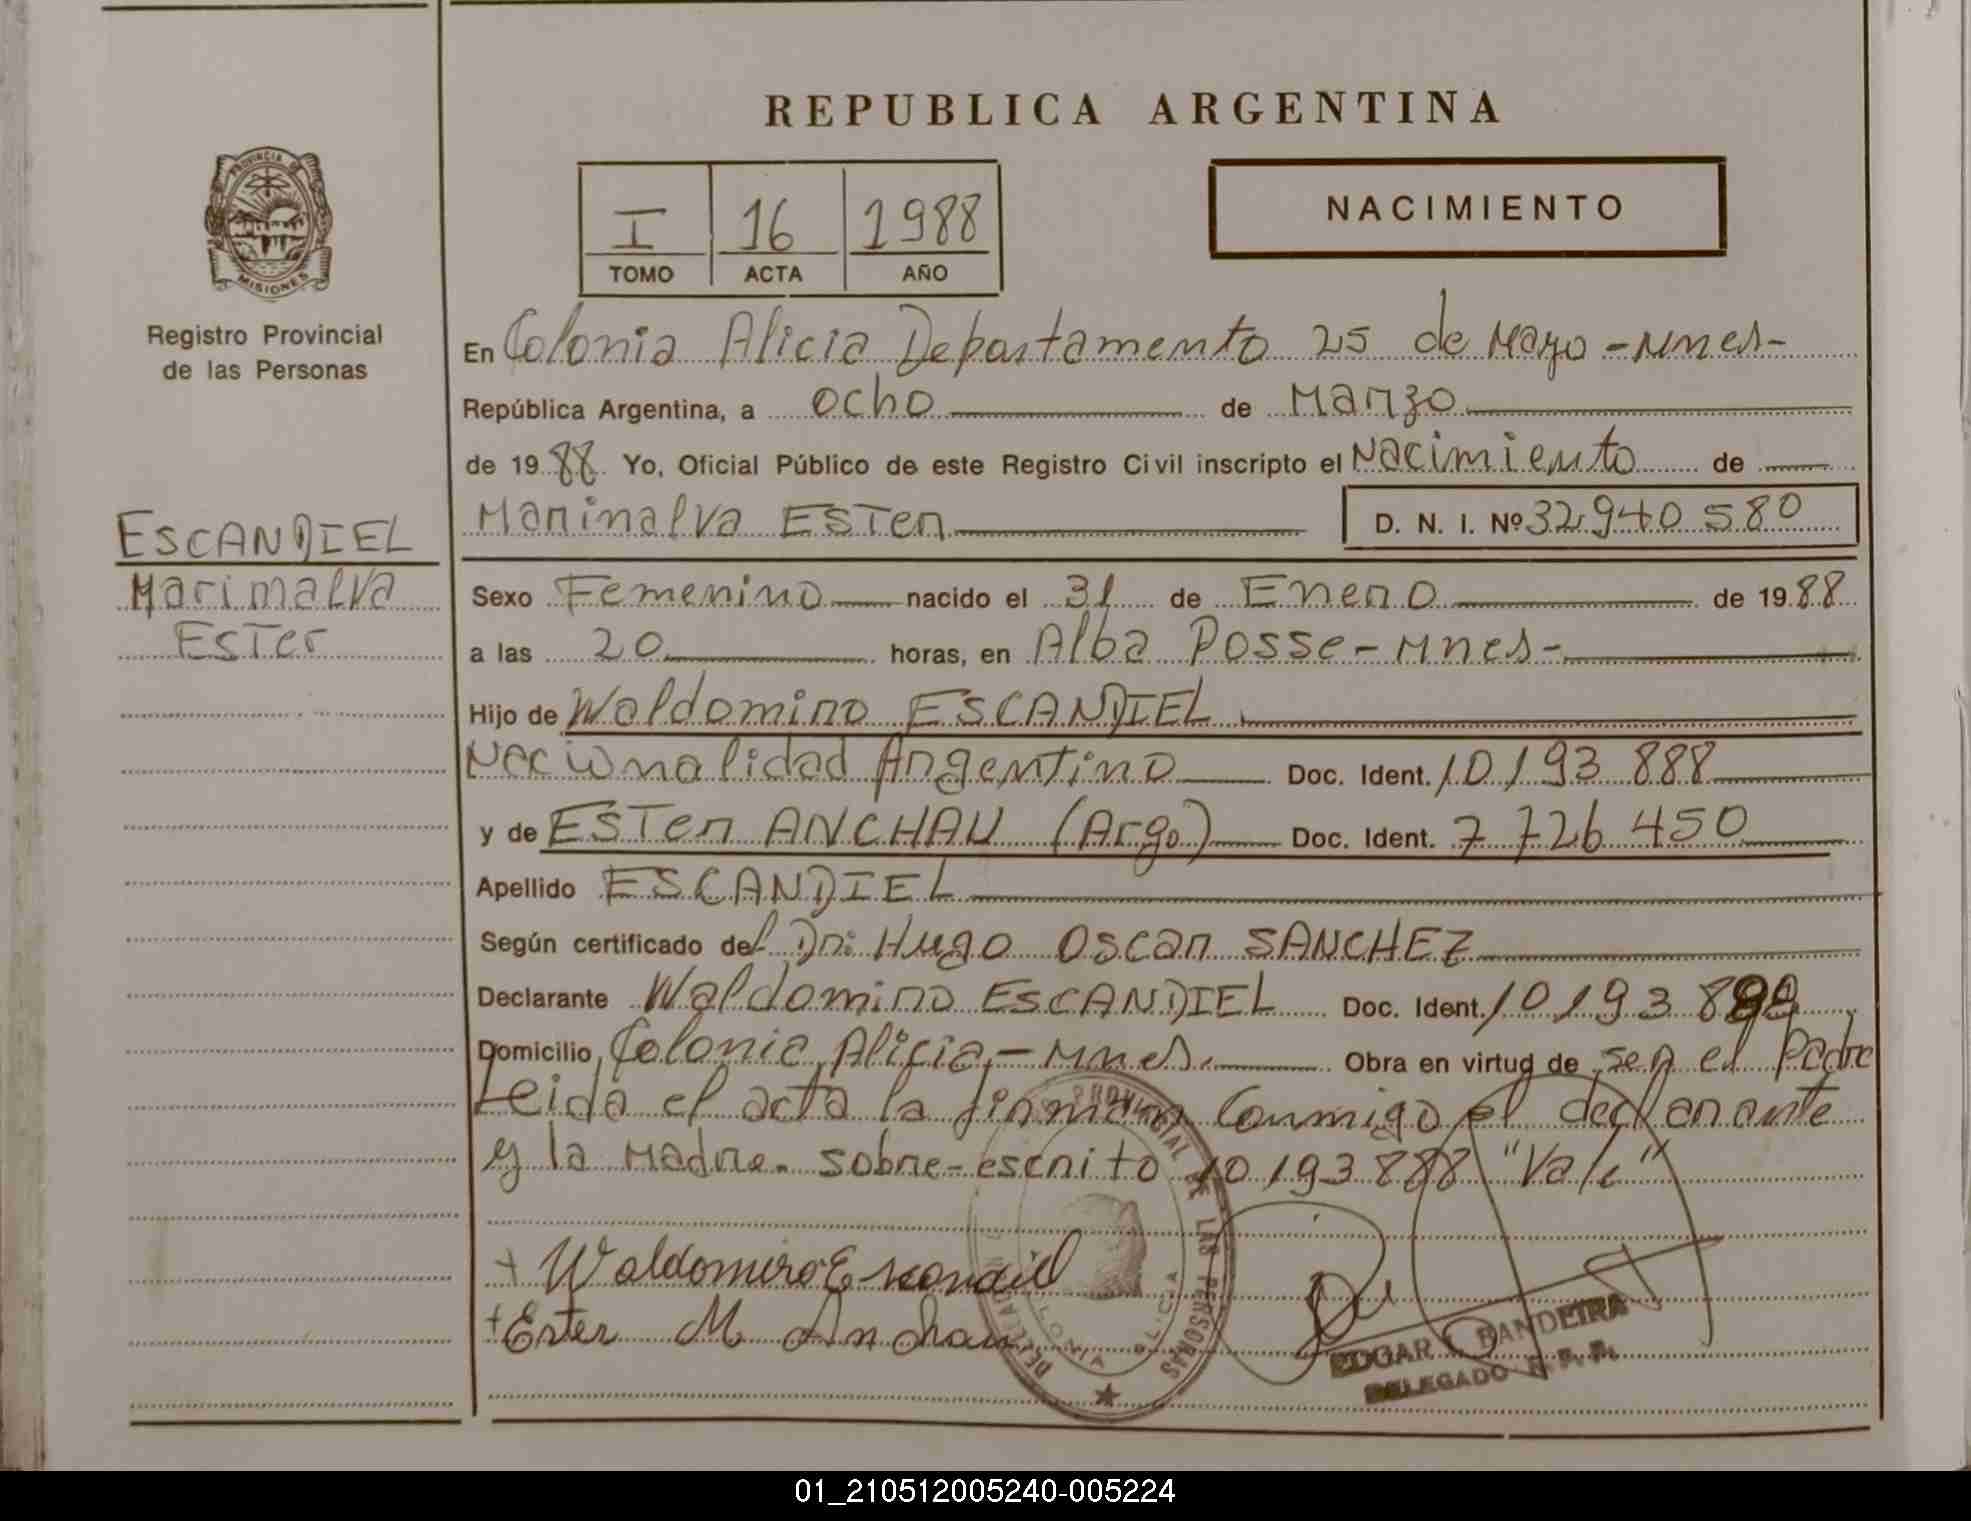 REPUBLICA ARGENTINA
PROVINCIA DE MISIONES
Registro Provincial
de las Personas
I 16 1988
TOMO ACTA AÑO
NACIMIENTO
En Colonia Alicia Departamento 25 de Mayo - Mnes-
República Argentina, a ocho de Marzo
de 1988 Yo, Oficial Público de este Registro Civil inscripto el Nacimiento de
Marinalva ESTer D. N. I. Nº 32.940 580
ESCANDIEL
Marinalva
ESTer
Sexo Femenino nacido el 31 de Enero de 1988
a las 20 horas, en Alba Posse - Mnes-
Hijo de Waldomiro ESCANDIEL
Nacionalidad Argentino Doc. Ident. 10 193 888
y de ESTer ANCHAU (Argo) Doc. Ident. 7 726 450
Apellido ESCANDIEL
Según certificado del Dr: Hugo Oscar SANCHEZ
Declarante Waldomiro ESCANDIEL Doc. Ident. 10 193 888
Domicilio Colonia Alicia - Mnes. Obra en virtud de ser el Padre
Leida el acta la firman Conmigo el declarante
y la Madre. sobre-escrito 10 193 888 "Vale"
+ Waldomiro Escandiel
+ Ester M Anchau
PROVINCIAL DE LAS PERSONAS
COLONIA ALICIA
EDGAR BANDEIRA
DELEGADO R. P. P.
01_210512005240-005224